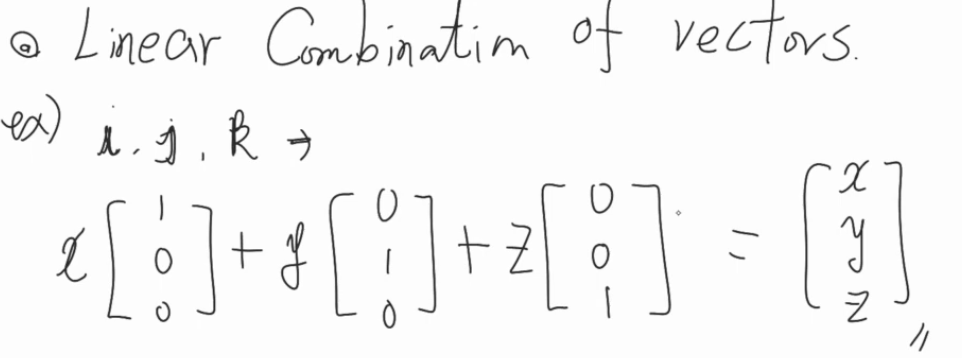 ◎ Linear Combination of vectors.
ex) i, j, k →
x[1 0 0] + y[0 1 0] + z[0 0 1] = [x y z]〃